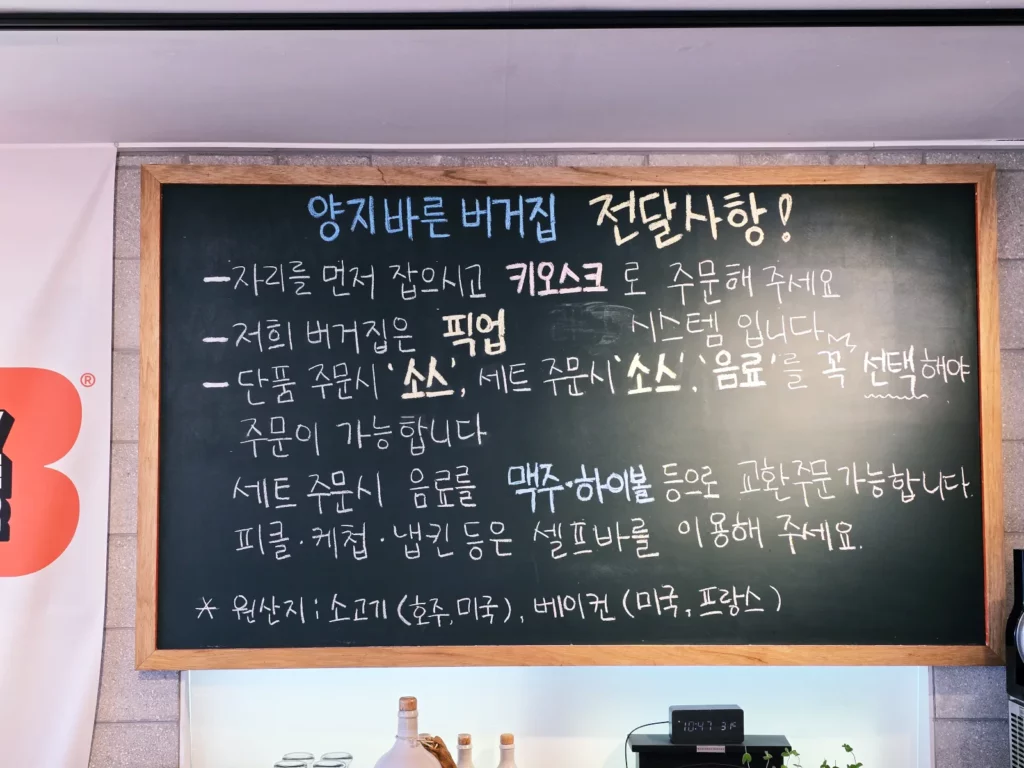 양지바른 버거집 전달사항!
- 자리를 먼저 잡으시고 키오스크로 주문해 주세요
- 저희 버거집은 픽업 시스템 입니다
- 단품 주문시 '소스', 세트 주문시 '소스', '음료'를 꼭 선택해야
주문이 가능합니다
세트 주문시 음료를 맥주·하이볼 등으로 교환주문 가능합니다.
피클·케첩·냅킨 등은 셀프바를 이용해 주세요.
* 원산지; 소고기(호주,미국), 베이컨(미국, 프랑스)
®
10:47 31